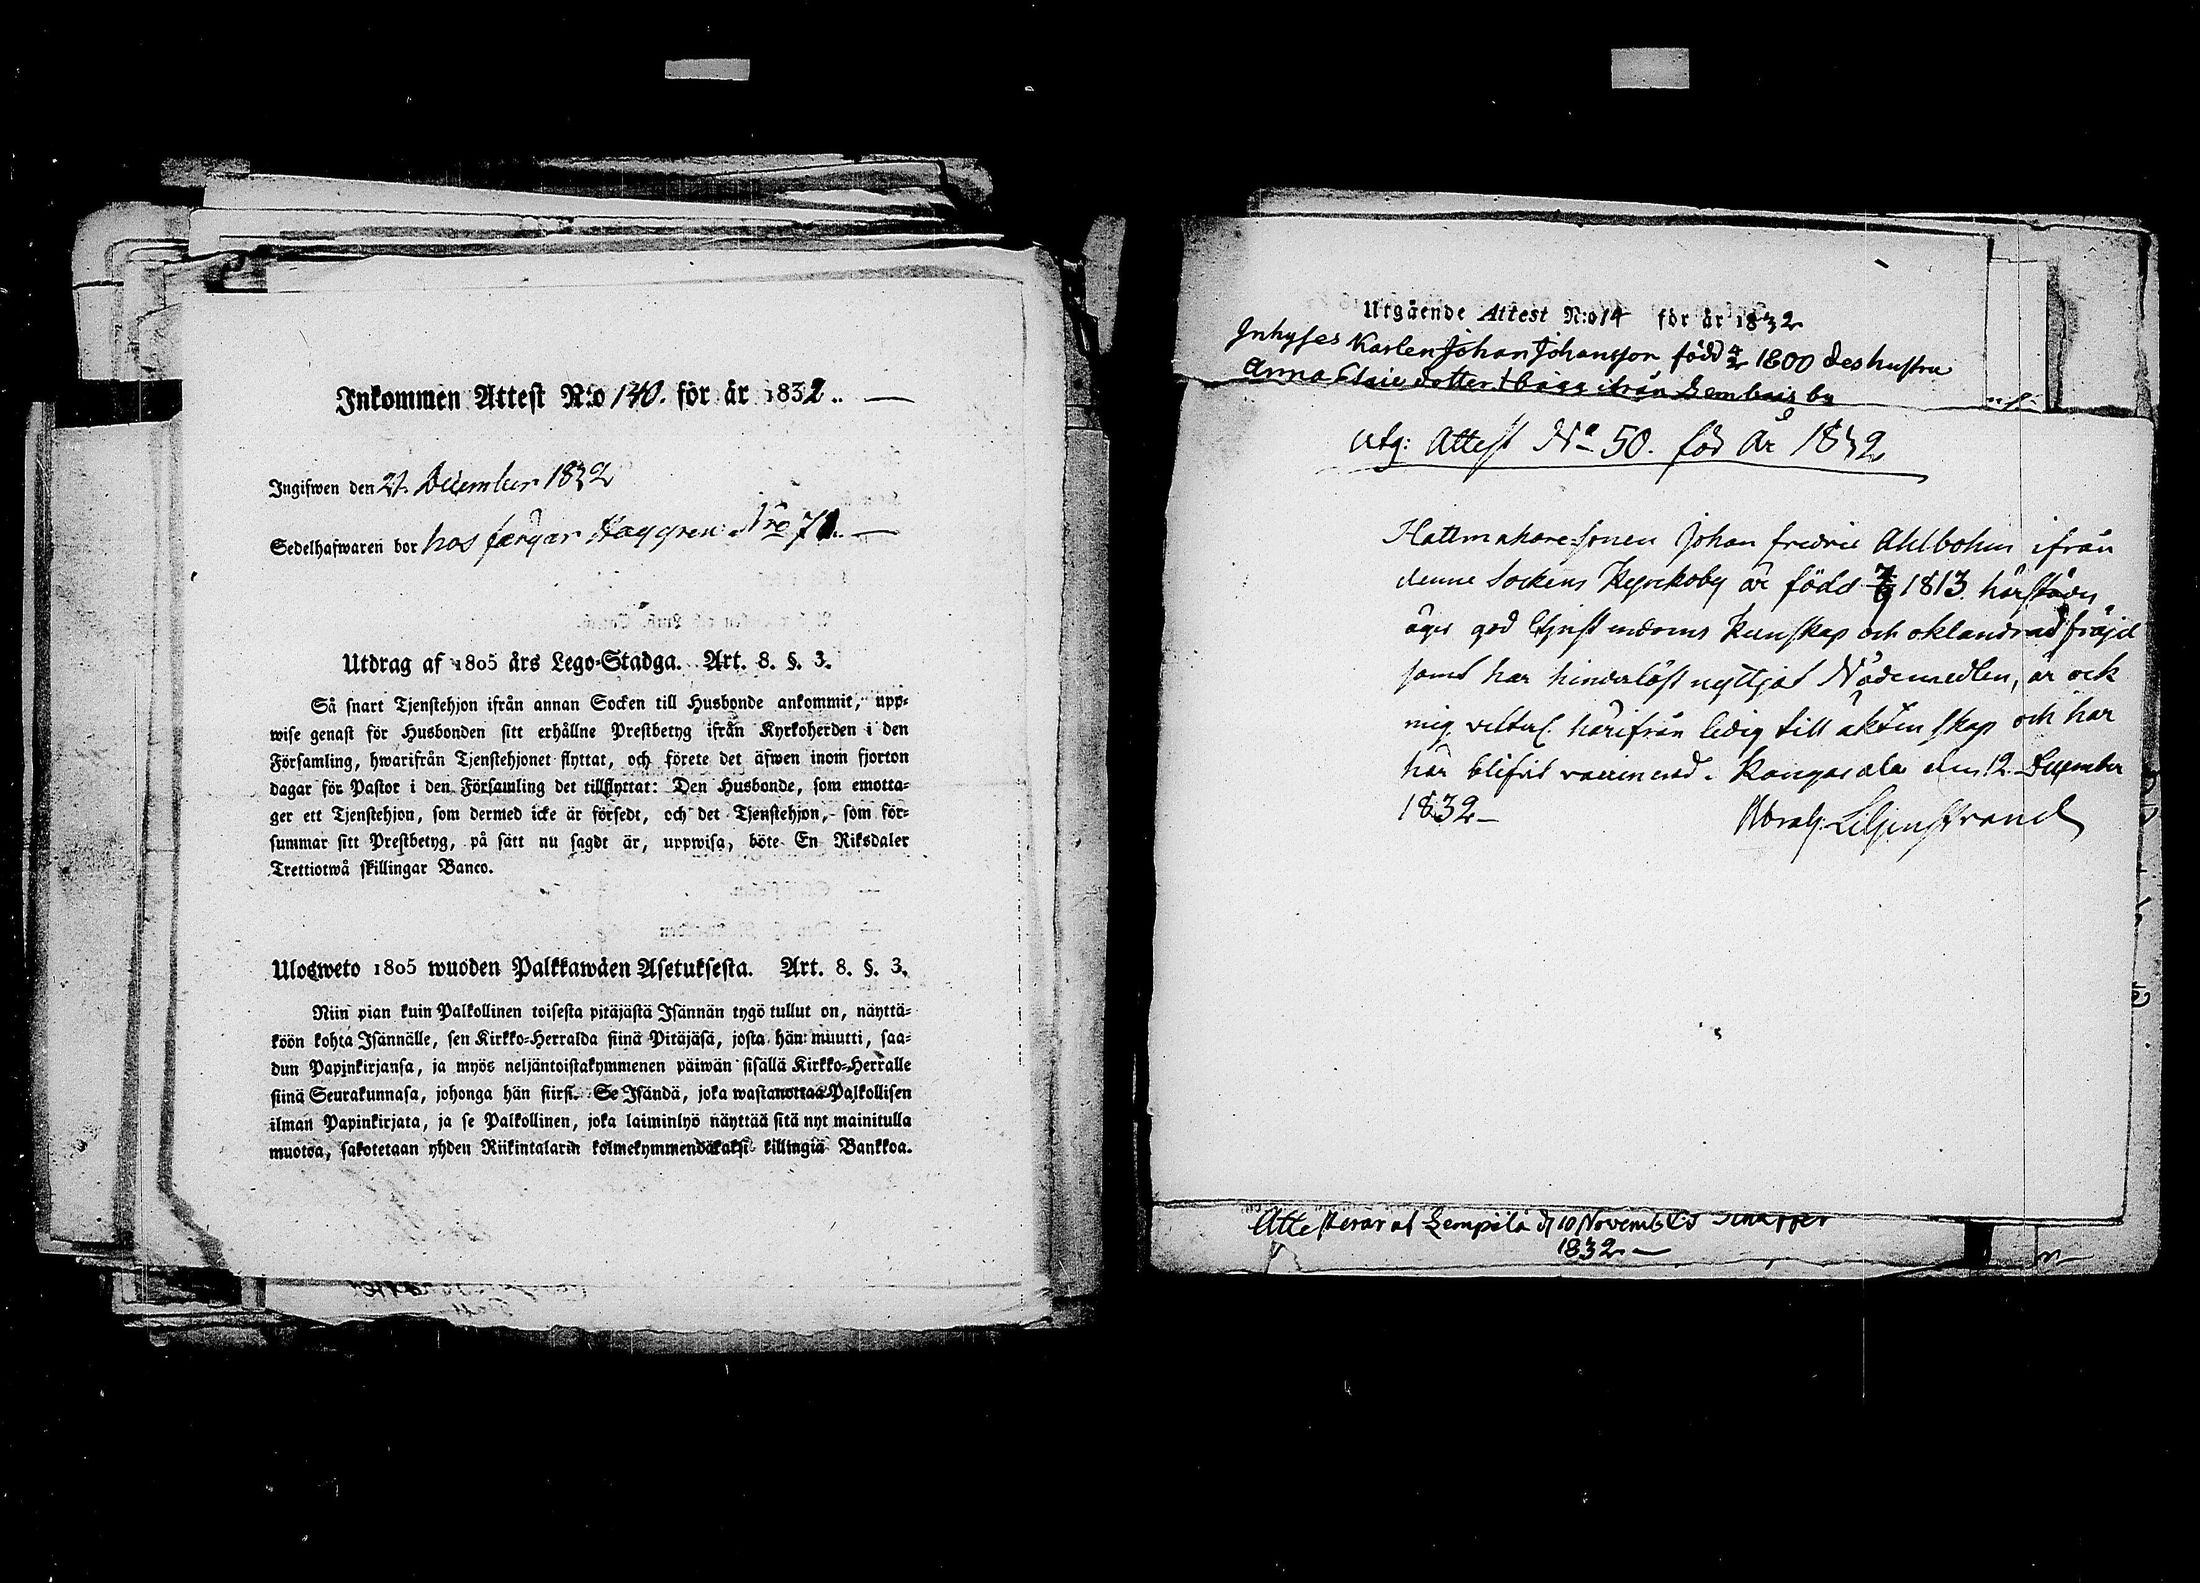 Inkommen Attest N:o 140. för år 1832..
Ingifwen den 21. December 1832
Sedelhafwaren bor hos färgar Häggren Nro 71.
Utdrag af 1805 års Lego-Stadga. Art. 8. §. 3.
Så snart Tjenstehjon ifrån annan Socken till Husbonde ankommit, upp-
wise genast för Husbonden sitt erhållne Prestbetyg ifrån Kyrkoherden i den
Församling, hwarifrån Tjenstehjonet flyttat, och förete det äfwen inom fjorton
dagar för Pastor i den Församling det tillflyttat: Den Husbonde, som emotta-
ger ett Tjenstehjon, som dermed icke är försedt, och det Tjenstehjon, som för-
summar sitt Prestbetyg, på sätt nu sagdt är, uppwisa, böte En Riksdaler
Trettiotwå skillingar Banco.
Ulosweto 1805 wuoden Palkkawäen Asetuksesta. Art. 8. §. 3.
Niin pian kuin Palkollinen toisesta pitäjästä Isännän tygö tullut on, näyttä-
köön kohta Isännälle, sen Kirkko-Herralda siinä Pitäjäsä, josta hän muutti, saa-
dun Papinkirjansa, ja myös neljäntoistakymmenen päiwän sisällä Kirkko-Herralle
siinä Seurakunnasa, johonga hän siirsi. Se Isändä, joka wastanottaa Palkollisen
ilman Papinkirjata, ja se Palkollinen, joka laiminlyö näyttää sitä nyt mainitulla
muotoa, sakotetaan yhden Riikintalarin kolmekymmendäkaksi killingiä Bankkoa.
Utgående Attest N:o 14 för år 1832
Inhyses Karlen Johan Johansson född 4/2 1800 des hustru
Anna dotter båda ifrån by
Utg: Attest No 50. för År 1832
Hattmakare sonen Johan Fredric Ahlbohm ifrån
denne Sockens Kyrckoby är född 7/9 1813. härstädes
äger god Christendoms kunskap och oklandrad fräjd
samt har hinderlöst nyttjat Nådemedlen, är ock
mig vetterl. härifrån ledig till äktenskap och har
här blifvit vaccinerad. Kangasala den 12 December
1832 Liljenstrand
Attesterar af Lempälä d 10 Novemb.
1832